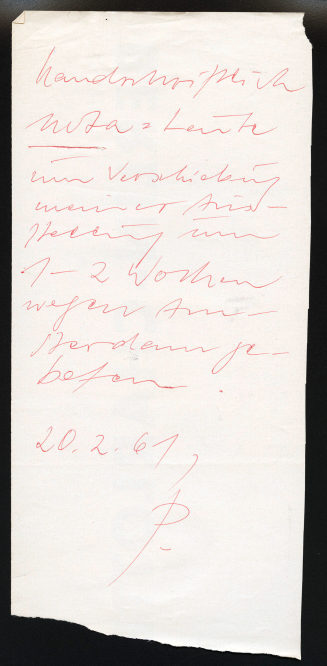 handschriftlich
nota = Leute
um Verschiebung
meiner Aus-
stellung um
1-2 Wochen
wegen Am-
sterdam ge-
beten.
20.2.61,
P.